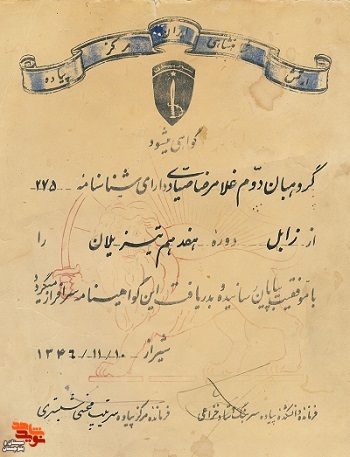 ارتش شاهنشاهی ایران مرکز پیاده
گواهی میشود
گروهبان دوم غلامرضا صیادی دارای شناسنامه ۲۷۵
از زابل دوره هفدهم تیزپلان را
با موفقیت بپایان رسانیده و بدریافت این گواهینامه سرافراز میگردد
شیراز ۱۳۴۶/۱۱/۱۰
فرمانده دانشکده پیاده سرهنگ ستاد خزاعی
فرمانده مرکز پیاده سرتیپ مجتبی شبستری
نوید شاهد